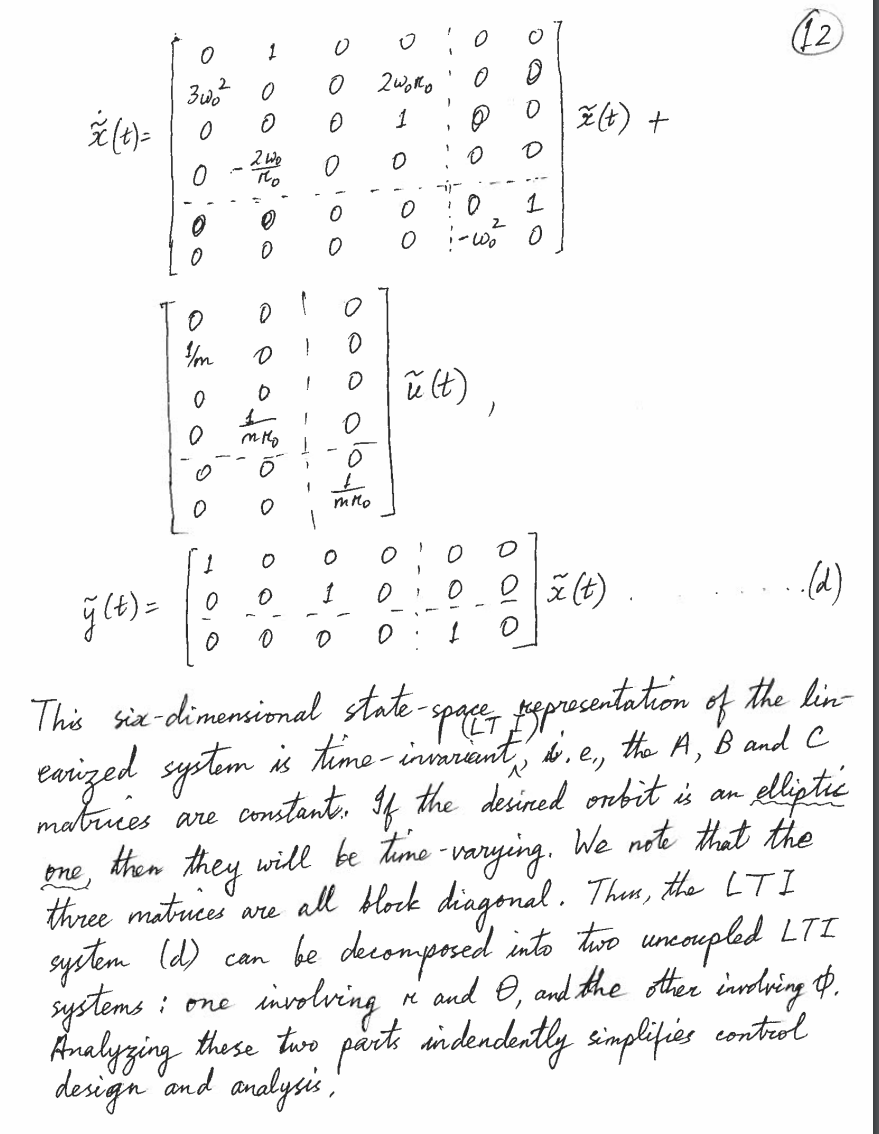 12
0 1 0 0 0 0
3ω₀² 0 0 2ω₀r₀ 0 0
ẋ̃(t)= 0 0 0 1 0 0 x̃(t) +
0 -2ω₀/r₀ 0 0 0 0
0 0 0 0 0 1
0 0 0 0 -ω₀² 0
0 0 0
1/m 0 0
0 0 0 ũ(t),
0 1/mr₀ 0
0 0 0
0 0 1/mr₀
1 0 0 0 0 0
ỹ(t)= 0 0 1 0 0 0 x̃(t) . . . . . . . .(d)
0 0 0 0 1 0
This six-dimensional state-space representation of the lin-
earized system is time-invariant (LTI), i.e., the A, B and C
matrices are constant. If the desired orbit is an elliptic
one, then they will be time-varying. We note that the
three matrices are all block diagonal. Thus, the LTI
system (d) can be decomposed into two uncoupled LTI
systems : one involving r and θ, and the other involving φ.
Analyzing these two parts indendently simplifies control
design and analysis.